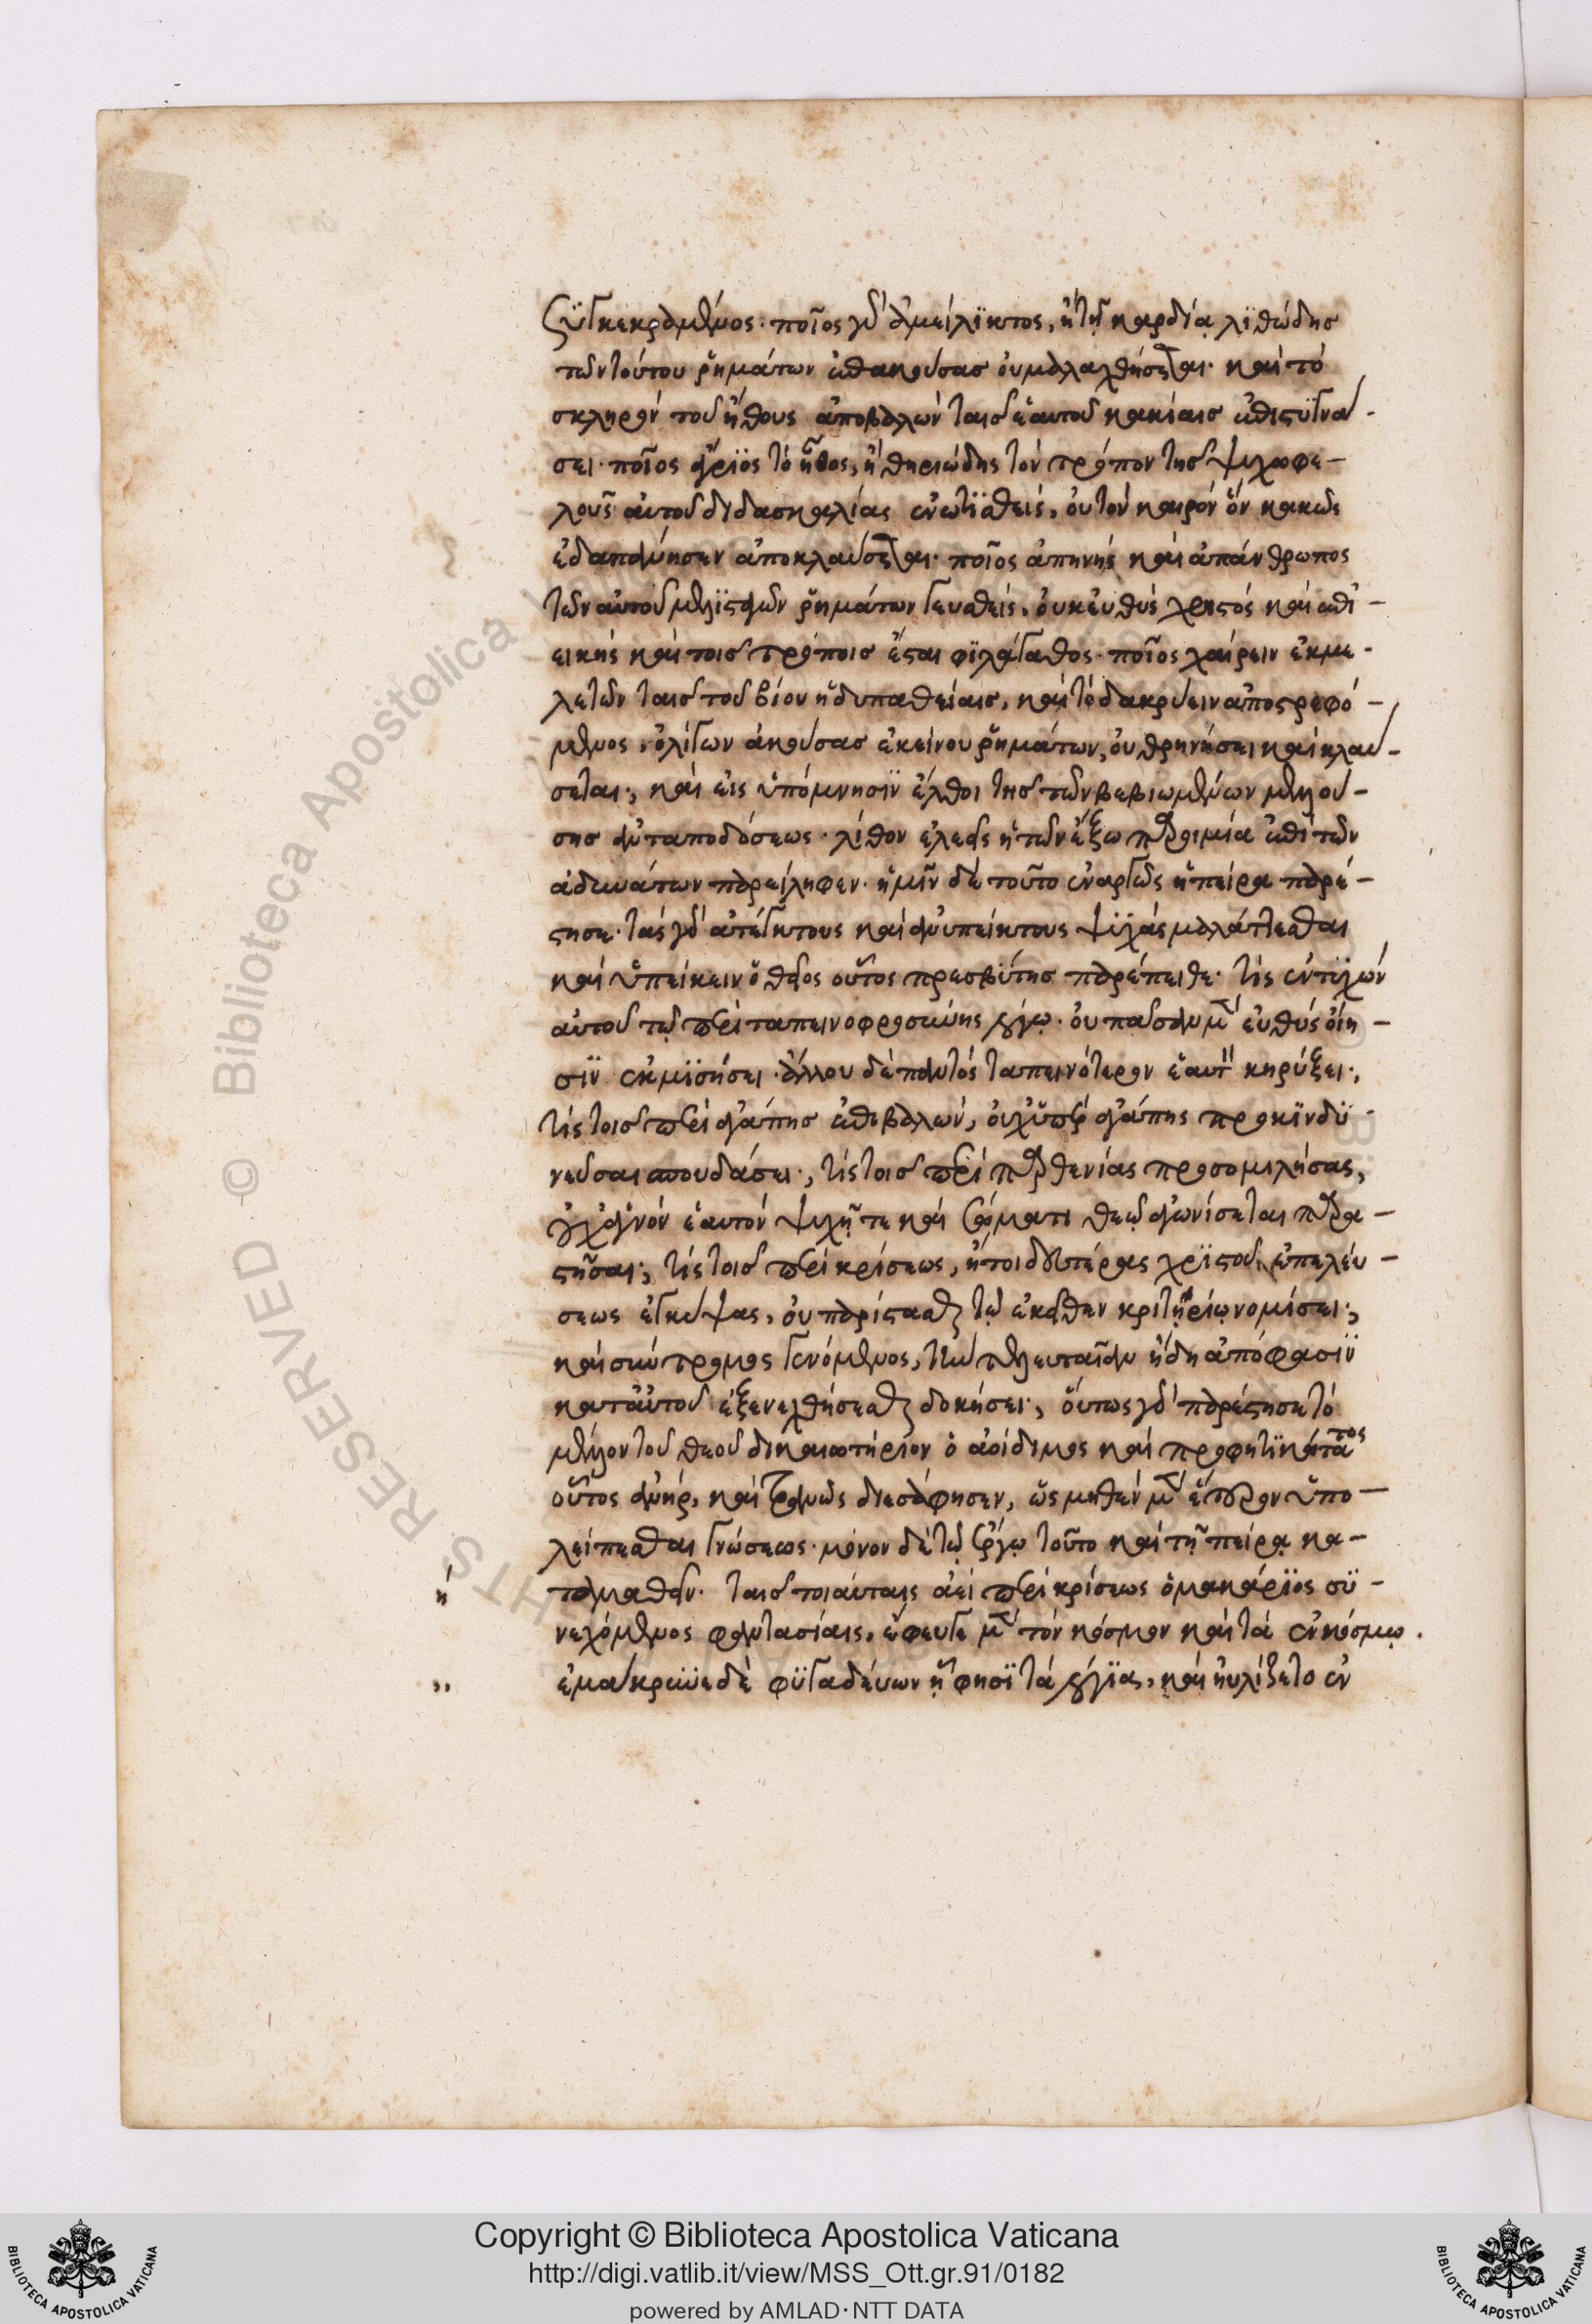 συγκεκραμμένος. ποῖος γὰρ ἀμείλϊκτος, ἢ τῇ καρδίᾳ λϊθώδης
τῶν τούτου ῥημάτων ἐπακούσας οὐ μαλαχθήσεται. καὶ τὸ
σκληρὸν τοῦ ἤθους ἀποβαλὼν ταῖς ἑαυτοῦ κακίαις ἐπιστυγνά-
σει. ποῖος ἄγρϊος τὸ ἦθος, ἢ θηριώδης τὸν τρόπον τῆς ψυχωφε-
λοῦς αὐτοῦ διδασκαλίας ἐνωτϊσθεὶς, οὐ τὸν καιρὸν ὃν κακῶς
ἐδαπάνησεν ἀποκλαύσεται. ποῖος ἀπηνὴς καὶ ἀπάνθρωπος
τῶν αὐτοῦ μελϊσταγῶν ῥημάτων γευσθεὶς, οὐκ εὐθὺς χρηστὸς καὶ ἐπι-
εικὴς καὶ τοῖς τρόποις ἔσται φϊλάγαθος. ποῖος χαίρειν ἐκμε-
λετῶν ταῖς τοῦ βίου ἡδυπαθείαις, καὶ τὸ δακρύειν ἀποστρεφό-
μενος, ὀλίγων ἀκούσας ἐκείνου ῥημάτων, οὐ θρηνήσει καὶ κλαύ-
σεται; καὶ εἰς ὑπόμνησϊν ἔλθοι τῆς τῶν βεβιωμένων μελλού-
σης ἀνταποδόσεως. λίθον ἑψεῖς ἡ τῶν ἔξω παροιμία ἐπὶ τῶν
ἀδυνάτων παρείληφεν. ἡμῖν δὲ τοῦτο ἐναργῶς ἡ πείρα παρέ-
στησε. τὰς γὰρ ἀτέγκτους καὶ ἀνυπείκτους ψϋχὰς μαλάττεσθαι
καὶ ὑπείκειν ὁ θεῖος οὗτος πρεσβύτης παρέπειθε. τίς ἐντϋχὼν
αὐτοῦ τῷ περὶ ταπεινοφροσύνης λόγῳ. οὐ πᾶσαν μὲν εὐθὺς οἴη-
σϊν ἐκμϊσήσει. ἄλλου δὲ παντὸς ταπεινότερον ἑαυτὸν κηρύξει;
τίς τοῖς περὶ ἀγάπης ἐπιβαλὼν, οὐχ ὑπὲρ ἀγάπης προκϊνδϋ-
νεῦσαι σπουδάσει; τίς τοῖς περὶ παρθενίας προσομιλήσας,
οὐχ ἁγνὸν ἑαυτὸν ψυχῇ τε καὶ σώματι θεῷ ἀγωνίσεται παρα-
στῆσαι; τίς τοῖς περὶ κρίσεως, ἤτοι δευτέρας χρϊστοῦ ἐπελεύ-
σεως ἐγκύψας, οὐ παρίστασθαι τῷ ἐκεῖθεν κριτηρίῳ νομίσει;
καὶ σύντρομος γενόμενος, τὴν τελευταίαν ἤδη ἀπόφασϊν
κατ' αὐτοῦ ἐξενεχθήσεσθαι δοκήσει; οὕτως γὰρ παρέστησε τὸ
μέλλον τοῦ θεοῦ δικαιωτήριον ὁ ἀοίδιμος καὶ προφητϊκώτατος
οὗτος ἀνὴρ, καὶ τρανῶς διεσάφησεν, ὡς μηθὲν μὲν ἕτερον ὑπο-
λείπεσθαι γνώσεως. μόνον δὲ τῷ ἔργῳ τοῦτο καὶ τῇ πείρᾳ κα-
ταμαθεῖν. ταῖς τοιαύταις ἀεὶ περὶ κρίσεως ὁ μακάρϊος σϋ-
νεχόμενος φαντασίαις, ἔφευγε μὲν τὸν κόσμον καὶ τὰ ἐν κόσμῳ.
ἐμάκρυνε δὲ φϋγαδεύων ᾗ φησϊ τὰ λόγϊα, καὶ ηὐλίζετο ἐν